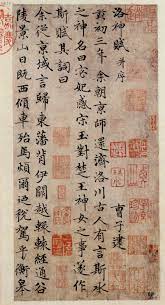 洛神賦 并序
曹子建
黃初三年余朝京師還濟洛川古人有言斯水
之神名曰宓妃感宋玉對楚王神女之事遂作
斯賦其詞曰
余從京域言歸東藩背伊闕越轘轅經通谷
陵景山日既西傾車殆馬煩爾迺稅駕乎蘅皋